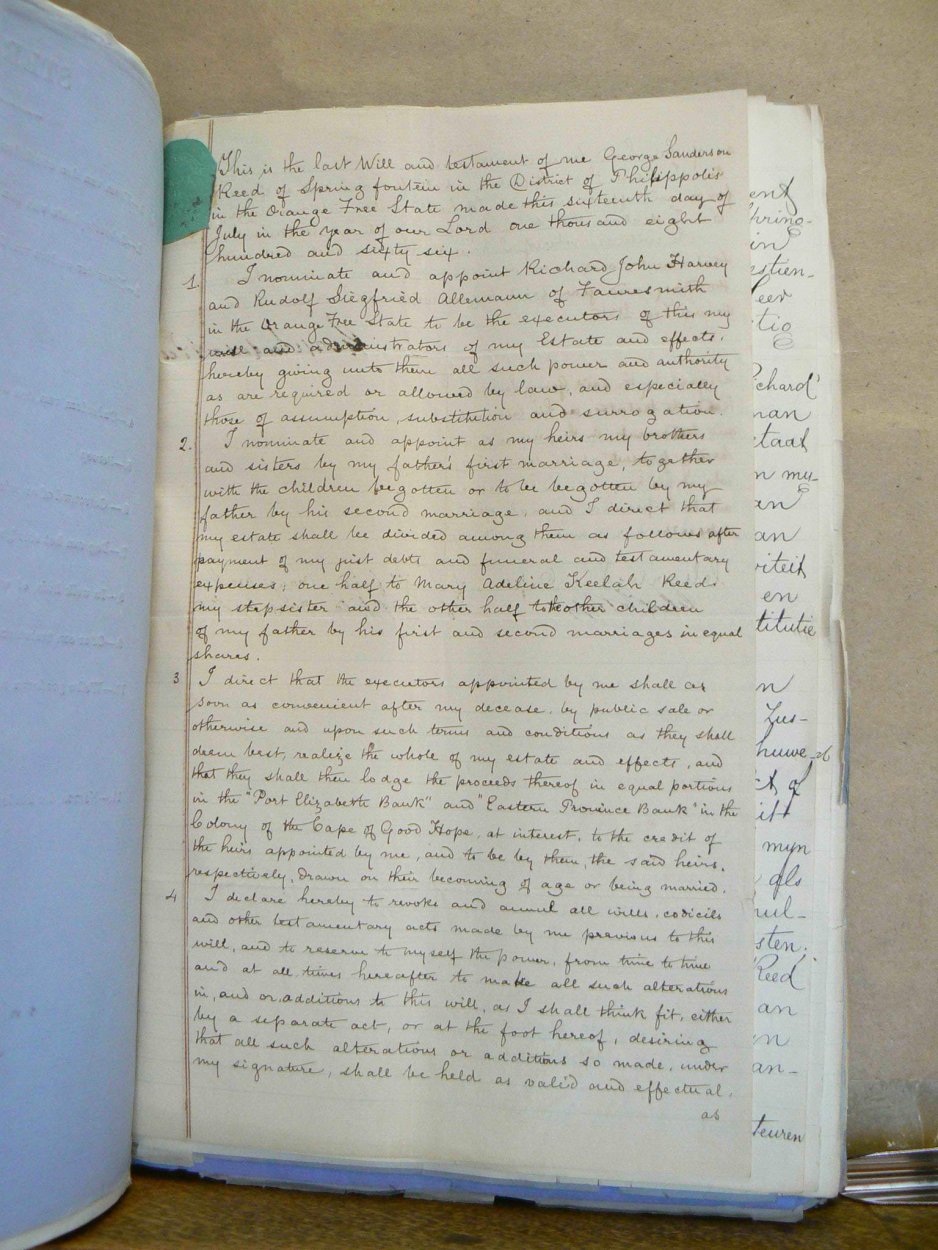 This is the last Will and testament of me George Sanderson
Reed of Spring fontein in the District of Philippolis
in the Orange Free State made this sixteenth day of
July in the year of our Lord one thousand eight
hundred and sixty six.
1. I nominate and appoint Richard John Harvey
and Rudolf Siegfried Allemann of Fauresmith
in the Orange Free State to be the executors of this my
and administrators of my Estate and effects,
hereby giving unto them all such power and authority
as are required or allowed by law, and especially
those of assumption, substitution and surrogation.
2. I nominate and appoint as my heirs my brothers
and sisters by my father's first marriage, together
with the children begotten or to be begotten by my
father by his second marriage, and I direct that
my estate shall be divided among them as follows after
payment of my just debts and funeral and testamentary
expenses; one half to Mary Adeline Keelah Reed
my stepsister and the other half to the other children
of my father by his first and second marriages in equal
shares.
3 I direct that the executors appointed by me shall as
soon as convenient after my decease, by public sale or
otherwise and upon such terms and conditions as they shall
deem best, realize the whole of my estate and effects, and
that they shall then lodge the proceeds thereof in equal portions
in the "Port Elizabeth Bank" and "Eastern Province Bank" in the
Colony of the Cape of Good Hope, at interest, to the credit of
the heirs appointed by me, and to be by them, the said heirs,
respectively, drawn on their becoming of age or being married.
4 I declare hereby to revoke and annul all wills, codicils
and other testamentary acts made by me previous to this
will, and to reserve to myself the power, from time to time
and at all times hereafter to make all such alterations
in, and or additions to this will, as I shall think fit, either
by a separate act, or at the foot hereof, desiring
that all such alterations or additions so made, under
my signature, shall be held as valid and effectual,
as
in
an
an
en
titutie
n
Zus-
huwe-
myn
als
sten.
Reed
an
n
an-
teuren